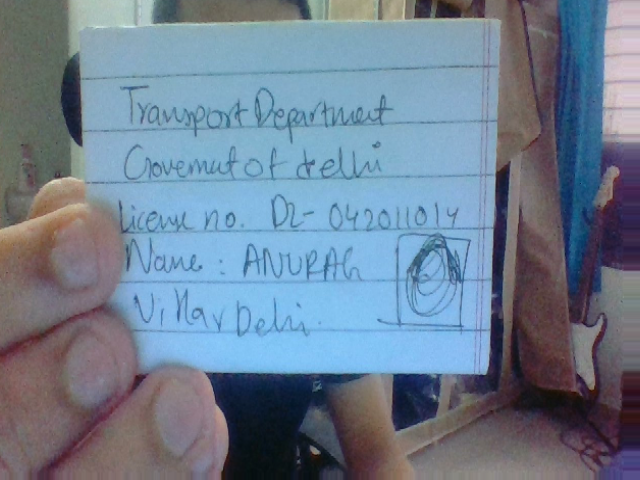 Transport Department
Govermut of delhi
License no. DL- 042011014
Name : ANURAG
Vihar Delhi.